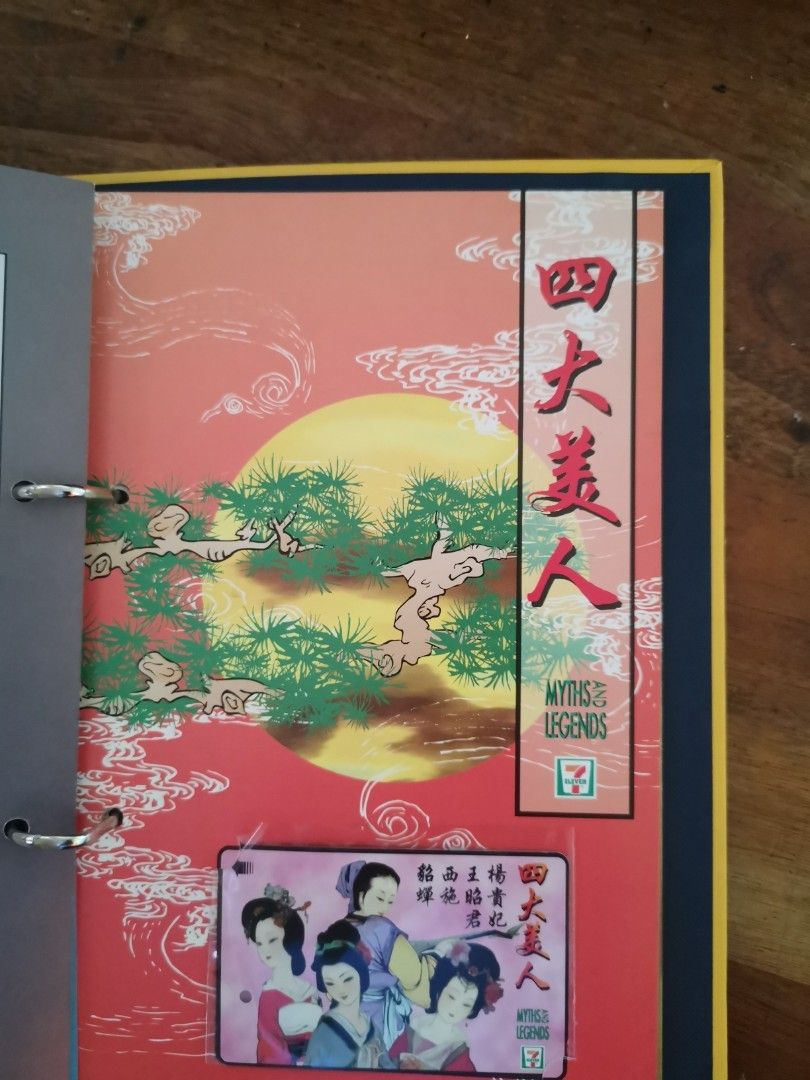 四大美人
MYTHS AND
LEGENDS
7
ELEVEN
四大美人
楊貴妃
王昭君
西施
貂蟬
MYTHS AND
LEGENDS
7